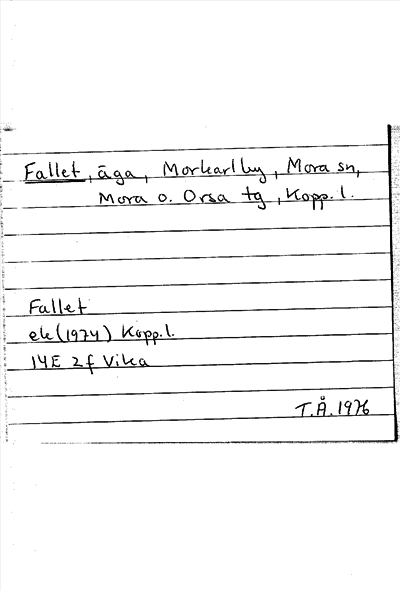 Fallet, äga, Morkarlby, Mora sn,
Mora o. Orsa tg, Kopp. l.
Fallet
ek (1974) Kopp. l.
14E 2f Vika
T.Å. 1976